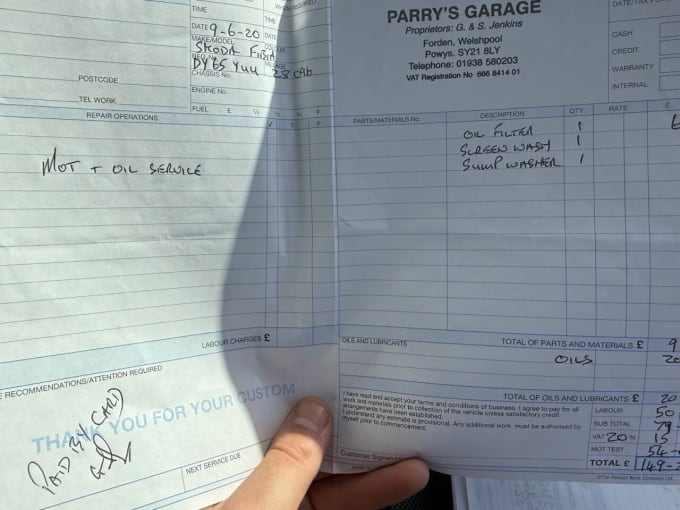 TIME
WHEN REQUIRED
TIME
DATE 9-6-20 DATE
MAKE/MODEL COLOUR
SKODA FABIA
REG. No.
DY65 YUU
CHASSIS No. 28096
POSTCODE
ENGINE No.
TEL WORK
FUEL E F
REPAIR OPERATIONS
MOT + OIL SERVICE
LABOUR CHARGES £
RECOMMENDATIONS/ATTENTION REQUIRED
THANK YOU FOR YOUR CUSTOM
PAID BY CARD
NEXT SERVICE DUE
PARRY'S GARAGE
Proprietors: G. & S. Jenkins
Forden, Welshpool
Powys. SY21 8LY
Telephone: 01938 580203
VAT Registration No 666 8414 01
CASH
CREDIT
WARRANTY
INTERNAL
PARTS/MATERIALS No. DESCRIPTION QTY. RATE £
OIL FILTER 1 6
SCREEN WASH 1
SUMP WASHER 1
TOTAL OF PARTS AND MATERIALS £ 9
OILS AND LUBRICANTS
OILS 20
TOTAL OF OILS AND LUBRICANTS £ 20
I have read and accept your terms and conditions of business. I agree to pay for all
work and materials prior to collection of the vehicle unless satisfactory credit
arrangements have been established.
I understand any estimate is provisional. Any additional work must be authorised by
myself prior to commencement.
LABOUR 50
SUB TOTAL 79
VAT 20% 15
MOT TEST 54
TOTAL £ 149-2
Customer Signature
©The Receipt Book Company Ltd.